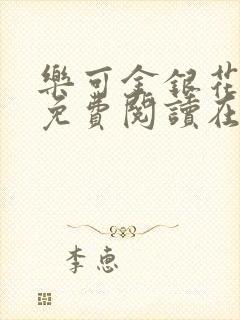 樂可金銀花
免費閱讀在
李惠